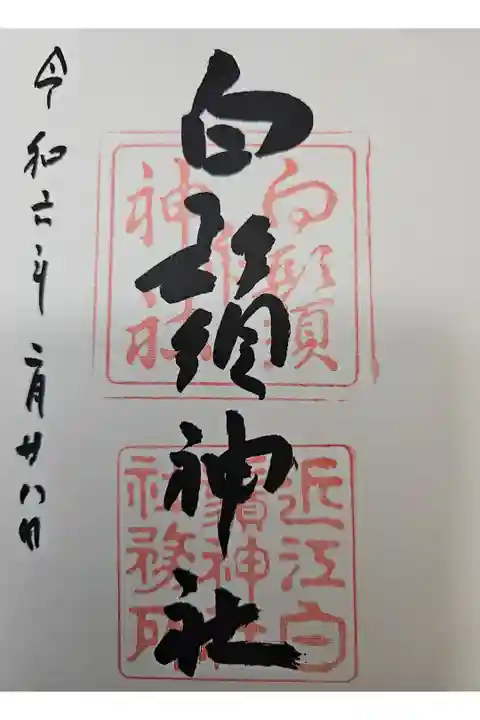 白鬚神社
令和六年二月廿八日
白鬚
神社
近江白
鬚神社
社務所